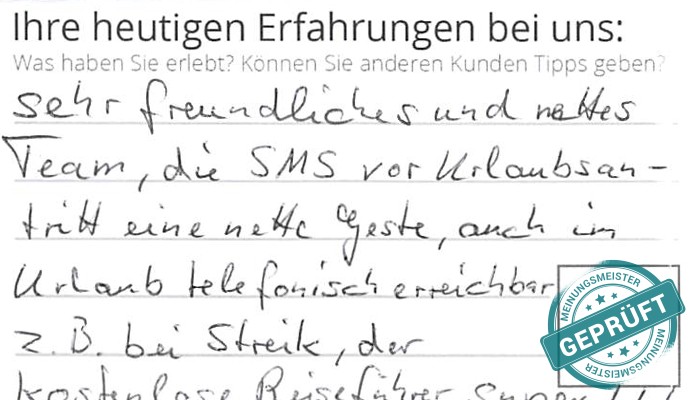 Ihre heutigen Erfahrungen bei uns:
Was haben Sie erlebt? Können Sie anderen Kunden Tipps geben?
sehr freundliches und nettes
Team, die SMS vor Urlaubsan-
tritt eine nette Geste, auch im
Urlaub telefonisch erreichbar
z.B. bei Streik, der
kostenlose Reiseführer super !!!
MEINUNGSMEISTER
GEPRÜFT
MEINUNGSMEISTER